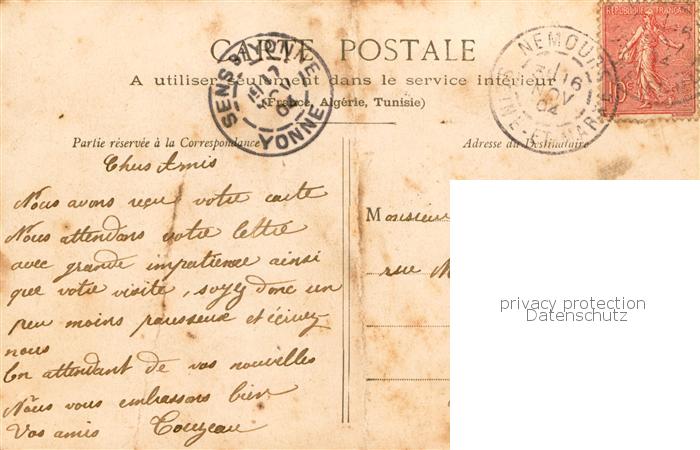 CARTE POSTALE
A utiliser seulement dans le service intérieur
(France, Algérie, Tunisie)
SENS-S-YONNE
17
NOV
04
YONNE
NEMOURS
16
NOV
04
SEINE-ET-MARNE
REPUBLIQUE FRANCAISE
10
Partie réservée à la Correspondance
Adresse du Destinataire
Chers Amis
Nous avons reçu votre carte
Nous attendons votre lettre
avec grande impatience ainsi
que votre visite, soyez donc un
peu moins paresseux et écrivez
nous
En attendant de vos nouvelles
Nous vous embrassons bien
Vos amis
Monsieur
rue
privacy protection
Datenschutz